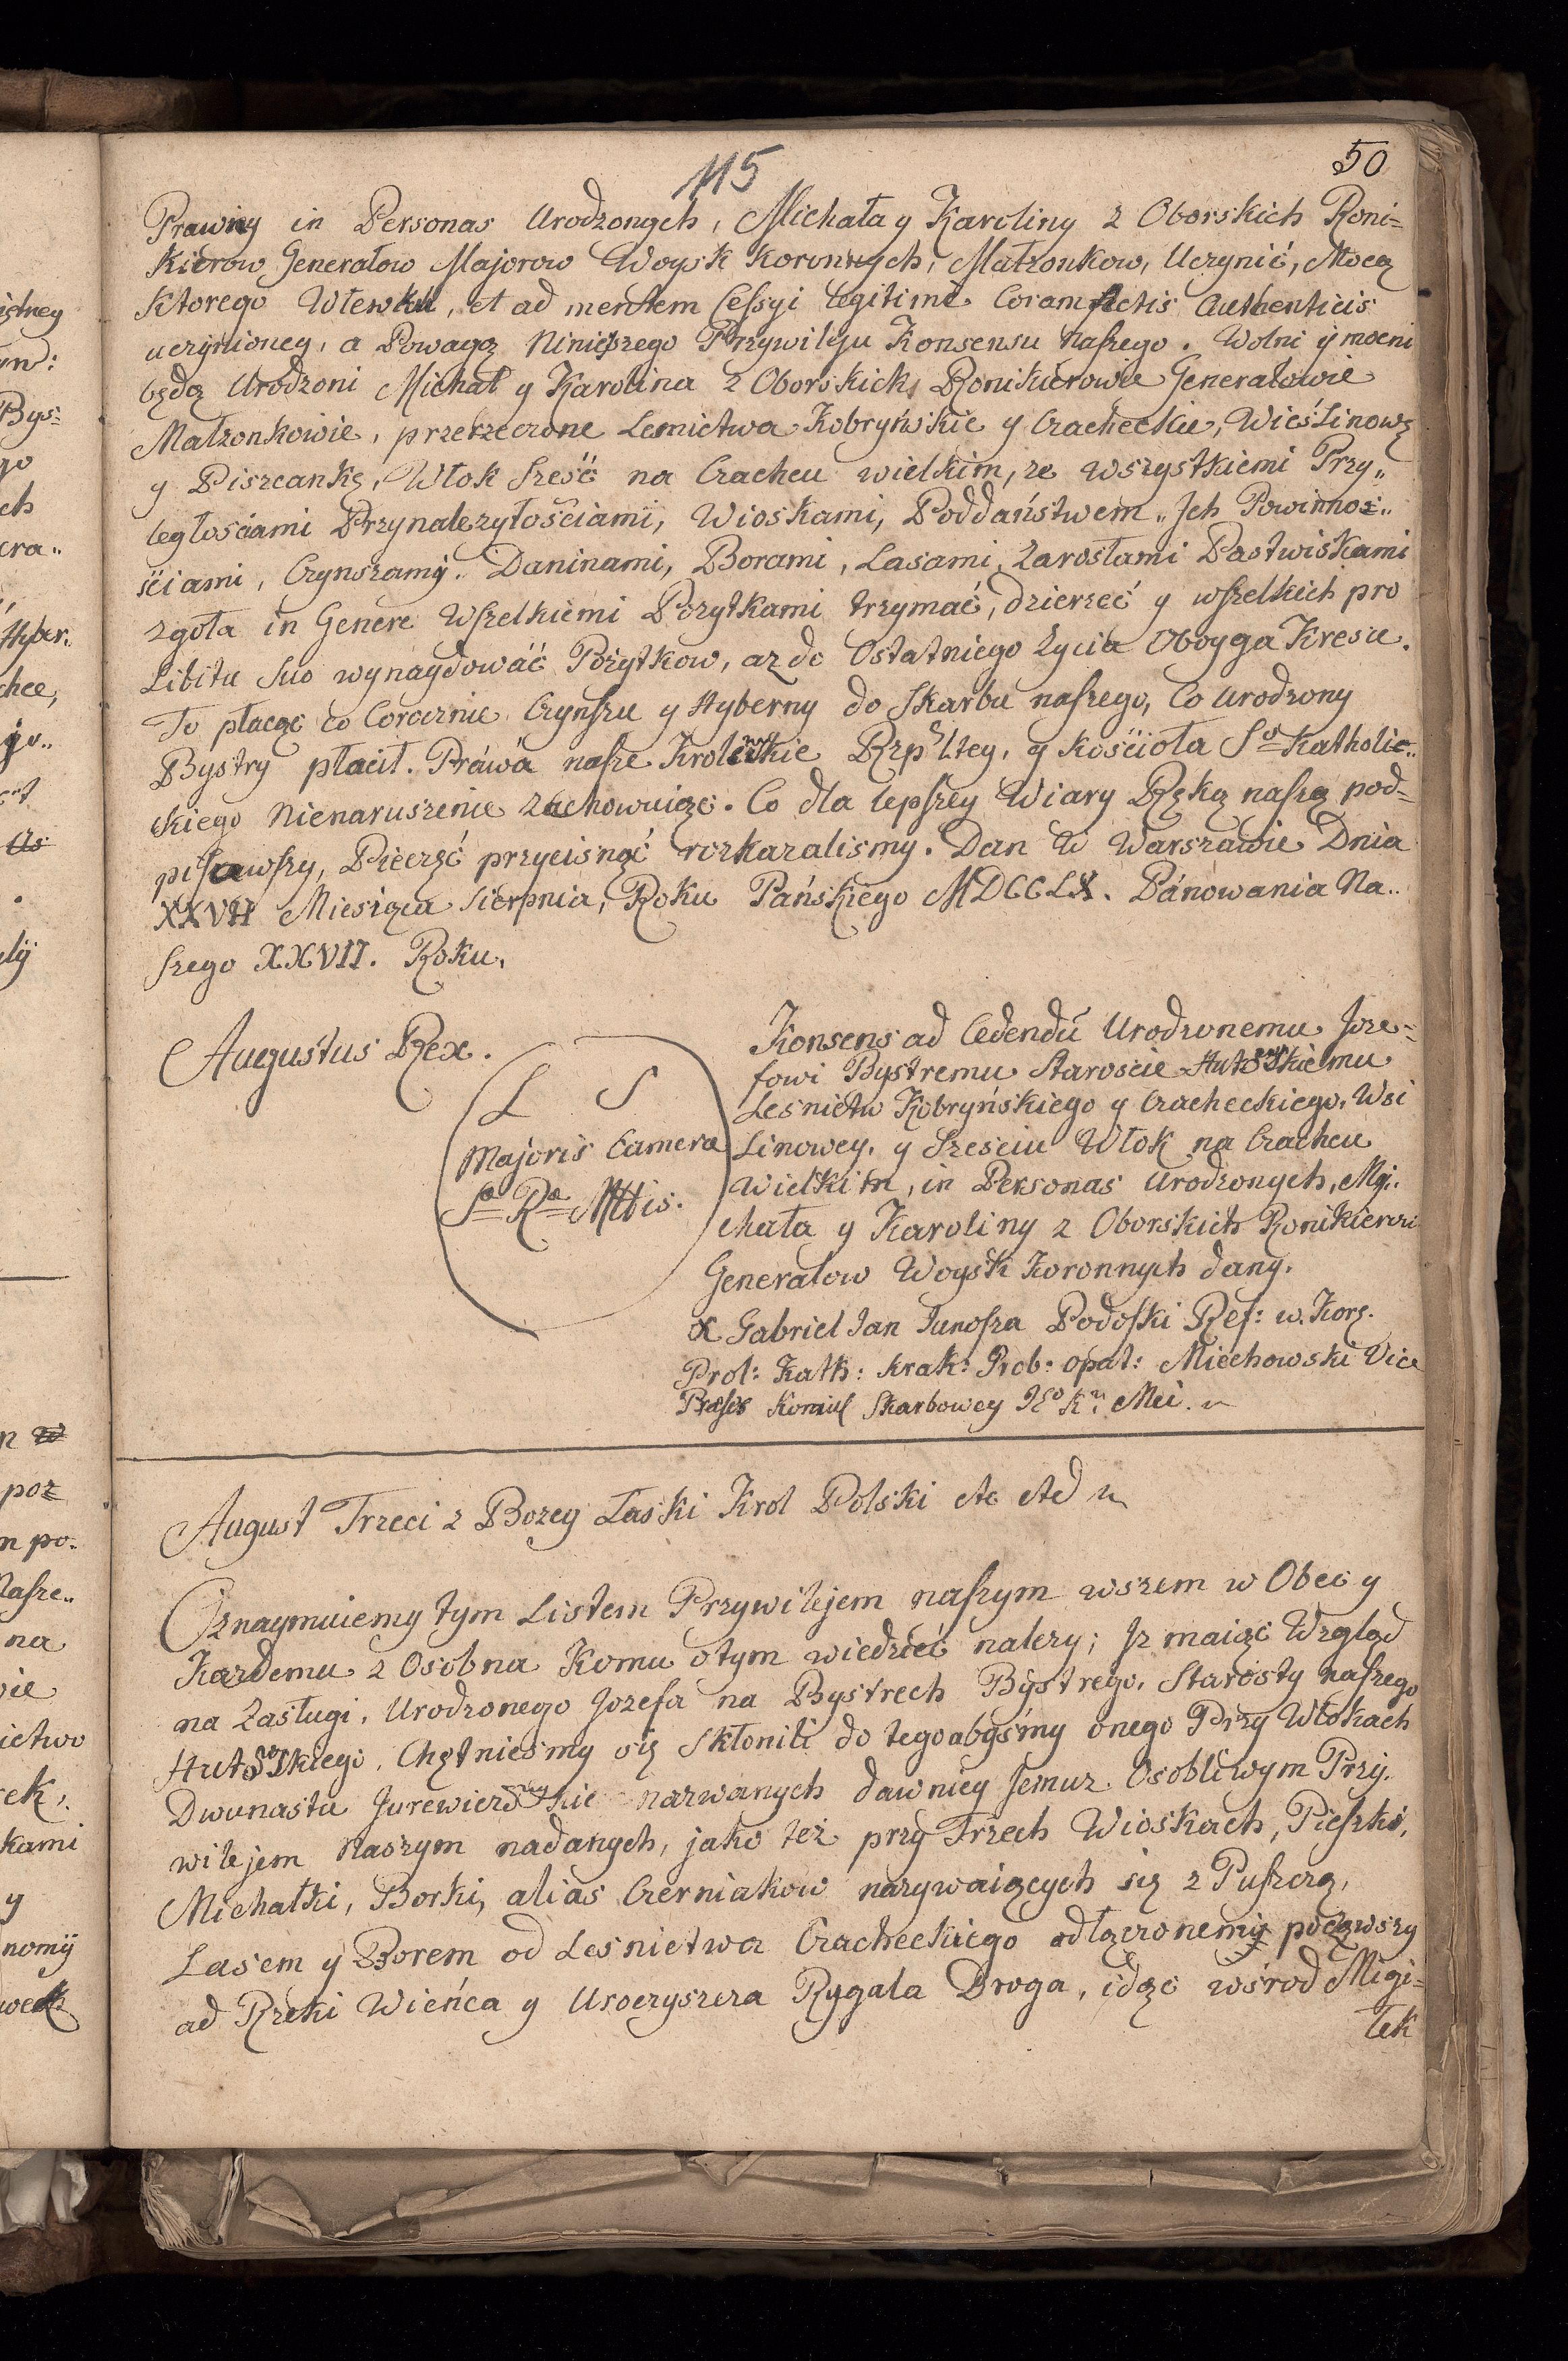 115
50
Prawny in Personas Urodzonych, Michała y Karoliny z Oborskich Roni=
Kierow Generałow Majorow Woysk Koronnych, Małzonkow, Uczynić, Mocą
Ktorego Wlewku, et ad mentem Cessyi legitime Coram Actis Authenticis
uczynioney, a Powagą Ninieszego Przywileju Konsensu naszego. Wolni y mocni
będą Urodzoni Michał y Karolina z Oborskich Ronikierowie Generałowie
Małzonkowie, przerzeczone Lesnictwa Kobryńskie y Czacheckie, Wieś Linowę
y Piszcankę, Włok Sześć na Czachcu wielkim, ze wszystkiemi Przy„
ległościami Przynalezytościami, Wioskami, Poddaństwem„ Jch Powinnoś„
ściami, Czynszamy. Daninami, Borami, Lasami, Zarosłami Pastwiskami
zgoła in Genere Wszelkiemi Pozytkami trzymać, dzierzeć y wszelkich pro
Libitu Suo wynaydować Pożytkow, az do Ostatniego Zycia Oboyga Kresu.
To płacąc co Corocznie Czynszu y Hyberny do Skarbu naszego, Co Urodzony
Bystry płacił. Práwá nasze Krolewskie Rzpltey, y Kościoła So Katholic„
kiego Nienaruszenie Zachowuiąc. Co dla lepszey Wiary Ręką naszą pod=
pisawszy, Pieczęć przycisnąć rozkazalismy. Dan w Warszawie Dnia
XXVII Miesiąca Sierpnia, Roku Pańskiego MDCCLX. Pánowania Na„
szego XXVII. Roku.
Augustus Rex.
L S
Majoris Camera
Sæ Ræ Mttis.
Konsens ad Cedendū Urodzonemu Joze=
fowi Bystremu Staroscie Hutowskiemu
Lesnictw Kobryńskiego y Czacheckiego, Wsi
Linowey, y Szesciu Włok na Czachcu
Wielkim, in Personas Urodzonych, Mi„
chała y Karoliny z Oborskich Ronikierow
Generałow Woysk Koronnych dany.
X Gabriel Jan Junosza Podoski Ref: w. Kor.
Prol: Kath: Krak: Prob: opat: Miechowski Vice
Præses Komiss Skarbowey Mci.
August Trzeci z Bozey Łaski Krol Polski etc etc
Oznaymuiemy tym Listem Przywilejem naszym wszem w Obec y
Kazdemu z Osobna Komu o tym wiedzieć nalezy; Jz maiąc Wzgląd
na Zasługi, Urodzonego Jozefa na Bystrech Bystrego, Starosty naszego
Hutowskiego. Chętniesmy się Skłonili do tego abyśmy onego Przy Włokach
Dwunastu Jurewiczowskie nazwanych dawniey Jemuz Osobliwym Przy„
wilejem naszym nadanych, jako też przy Trzech Wioskach, Pieszki,
Michałki, Borki, alias Czerniakow nazywaiących się z Puszczą,
Lasem y Borem od Lesnictwa Czacheckiego odłączonemi począwszy
ad Rzeki Wieńca y Usoczyszcza Rygala Droga, idąc wśrod Migi=
łek